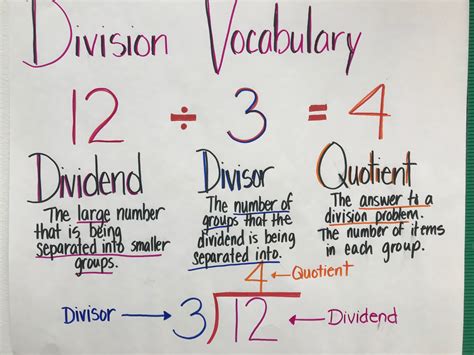 Division Vocabulary
12 ÷ 3 = 4
Dividend
The large number
that is being
separated into smaller
groups.
Divisor
The number of
groups that the
dividend is being
separated into.
Quotient
The answer to a
division problem.
The number of items
in each group.
4 ← Quotient
Divisor → 3)12 ← Dividend